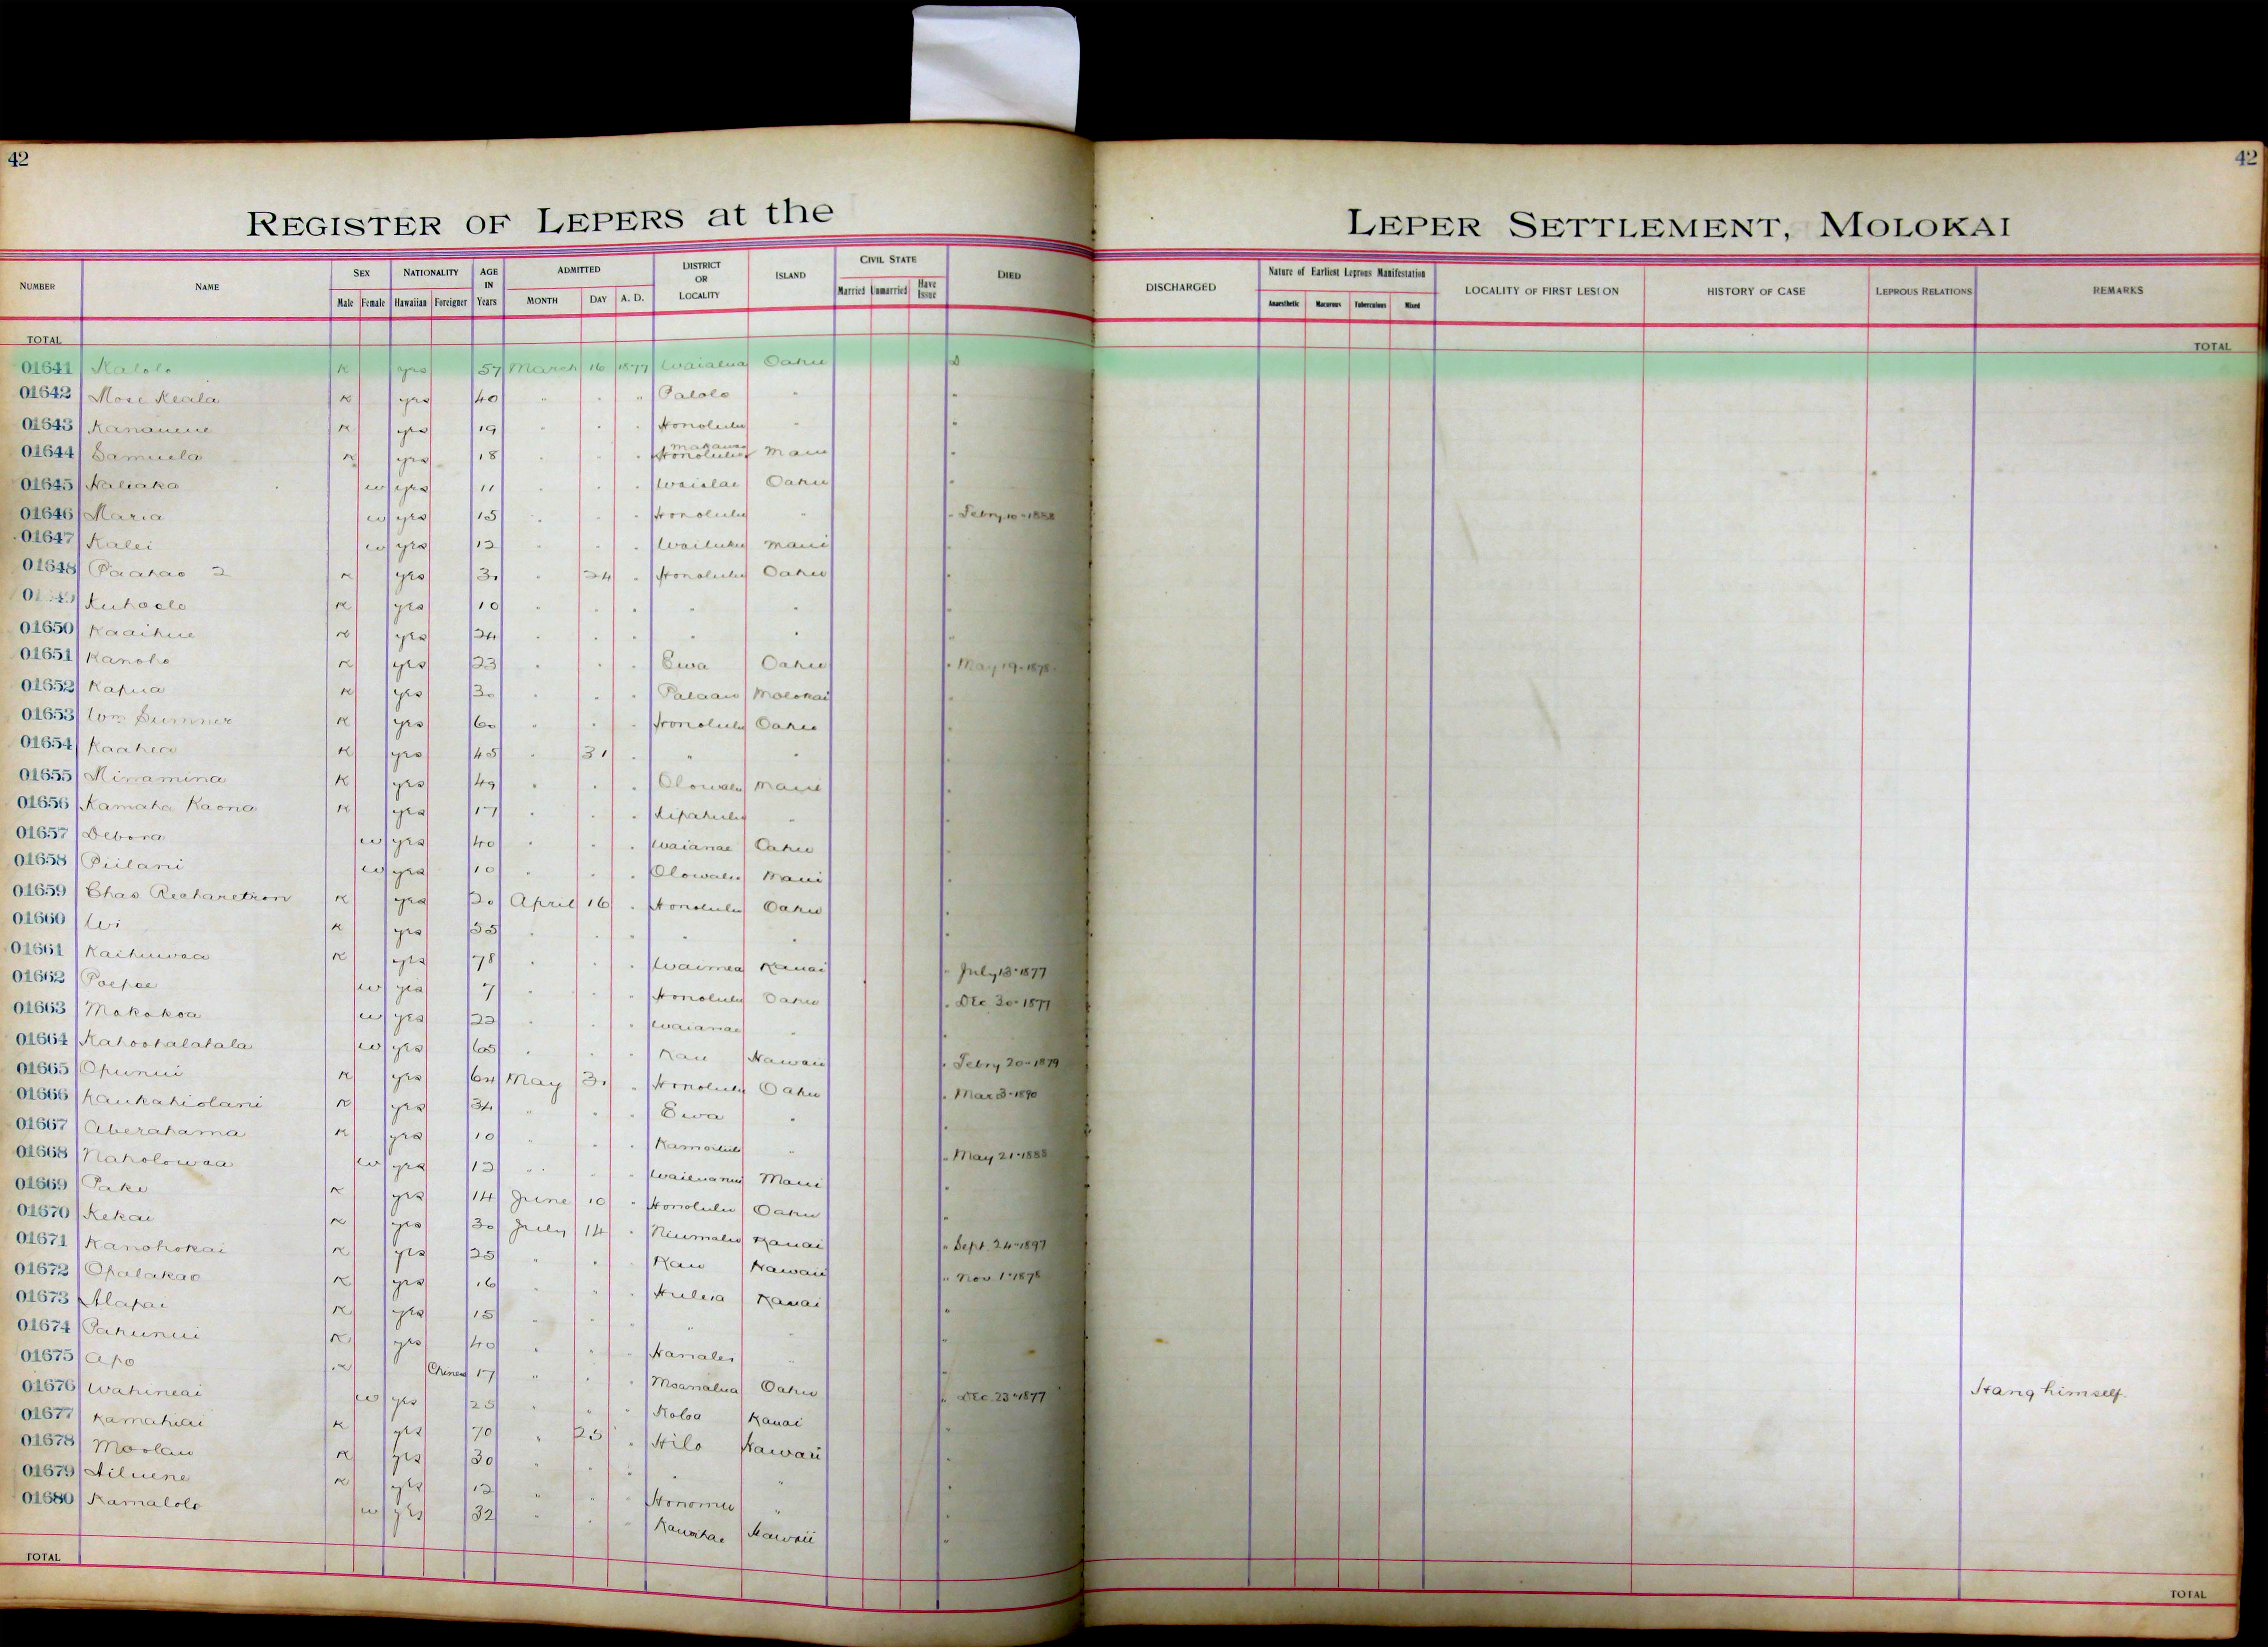 42
42
REGISTER OF LEPERS at the LEPER SETTLEMENT, MOLOKAI
NUMBER NAME SEX NATIONALITY AGE IN Years ADMITTED DISTRICT OR LOCALITY ISLAND CIVIL STATE DIED DISCHARGED Nature of Earliest Leprous Manifestation LOCALITY OF FIRST LESION HISTORY OF CASE LEPROUS RELATIONS REMARKS
Male Female Hawaiian Foreigner MONTH DAY A. D. Married Unmarried Have Issue Anaesthetic Macurous Tuberculous Mixed
TOTAL TOTAL
01641 Kalolo K yes 57 March 16 1877 Waialua Oahu D
01642 Mose Keala K yes 40 " " " Palolo " "
01643 Kananene K yes 19 " " " Honolulu " "
01644 Samuela K yes 18 " " " Honolulu Makawao Maui "
01645 Naliaka w yes 11 " " " Waialae Oahu "
01646 Maria w yes 15 " " " Honolulu " " Febry 10-1888
01647 Kalei w yes 12 " " " Wailuku Maui "
01648 Paahao 2 K yes 30 " 24 " Honolulu Oahu "
Kuhaelo K yes 10 " " " " " "
01650 Kaaihue K yes 24 " " " " " "
01651 Kanoho K yes 23 " " " Ewa Oahu " May 19-1878
01652 Kapua K yes 30 " " " Palaau Molokai "
01653 Wm Sumner K yes 60 " " " Honolulu Oahu "
01654 Kaahea K yes 45 " 31 " " " "
01655 Minamina K yes 49 " " " Olowalu Maui "
01656 Kamaha Kaona K yes 17 " " " Kipahulu " "
01657 Debora w yes 40 " " " Waianae Oahu "
01658 Piilani w yes 10 " " " Olowalu Maui "
01659 Chas Richaretson K yes 20 April 16 " Honolulu Oahu "
01660 Wi K yes 55 " " " " " "
01661 Kaihuwaa K yes 78 " " " Waimea Kauai " July 13-1877
01662 Poepoe w yes 7 " " " Honolulu Oahu " Dec 30-1877
01663 Makakoa w yes 22 " " " Waianae " "
01664 Kahoohalahala w yes 65 " " " Kau Hawaii " Febry 20-1879
01665 Opunui K yes 64 May 31 " Honolulu Oahu " Mar 3-1890
01666 Kaukahiolani K yes 34 " " " Ewa " "
01667 Aberahama K yes 10 " " " Kamoiliili " " May 21-1888
01668 Naholowaa w yes 12 " " " Wailuanui Maui "
01669 Pake K yes 14 June 10 " Honolulu Oahu "
01670 Kekai K yes 30 July 14 " Niumalu Kauai " Sept. 24-1897
01671 Kanohokai K yes 25 " " " Kau Hawaii " Nov. 1-1878
01672 Opalakao K yes 16 " " " Huleia Kauai "
01673 Alapai K yes 15 " " " " " "
01674 Pahunui K yes 40 " " " Hanalei " "
01675 Apo K Chinese 17 " " " Moanalua Oahu " Dec. 23-1877 Hang himself.
01676 Wahineai w yes 25 " " " Koloa Kauai "
01677 Kamahiai K yes 70 " 25 " Hilo Hawaii "
01678 Moolau K yes 30 " " " " " "
01679 K yes 12 " " " Honomu " "
01680 Kamalolo w yes 32 " " " Kawaihae Hawaii "
TOTAL TOTAL